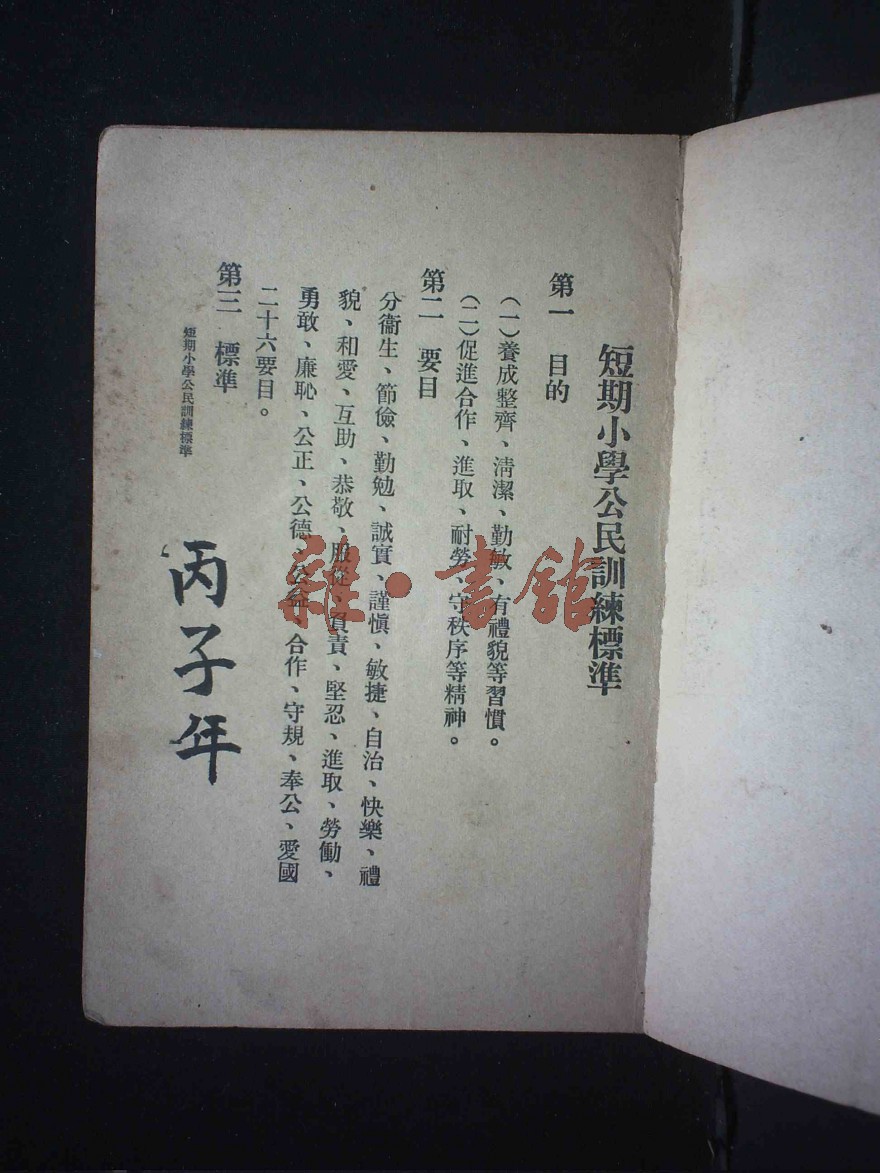 短期小學公民訓練標準
第一 目的
(一)養成整齊、淸潔、勤敏、有禮貌等習慣。
(二)促進合作、進取、耐勞、守秩序等精神。
第二 要目
分衞生、節儉、勤勉、誠實、謹愼、敏捷、自治、快樂、禮
貌、和愛、互助、恭敬、服從、負責、堅忍、進取、勞働、
勇敢、廉恥、公正、公德、公益、合作、守規、奉公、愛國
二十六要目。
第三 標準
短期小學公民訓練標準
丙子年
雜·書館